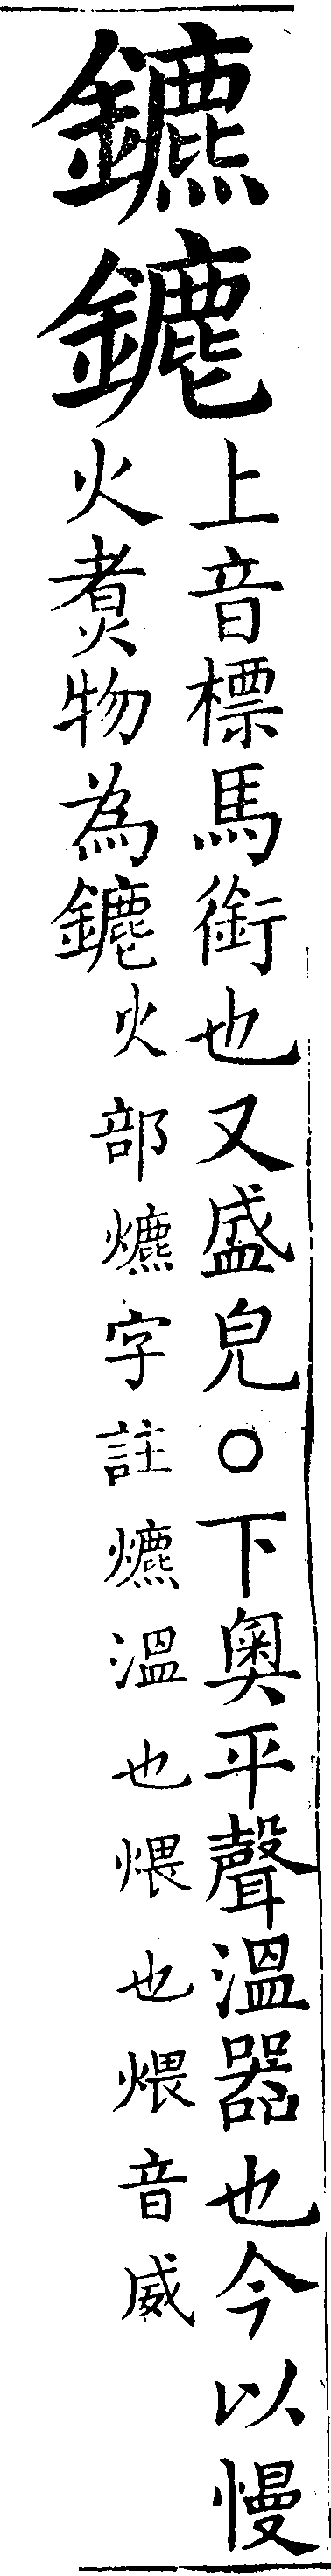 鑣鏕
上音標馬銜也又盛皃○下奧平聲溫器也今以慢
火煑物為鏕火部爊字註爊溫也煨也煨音威